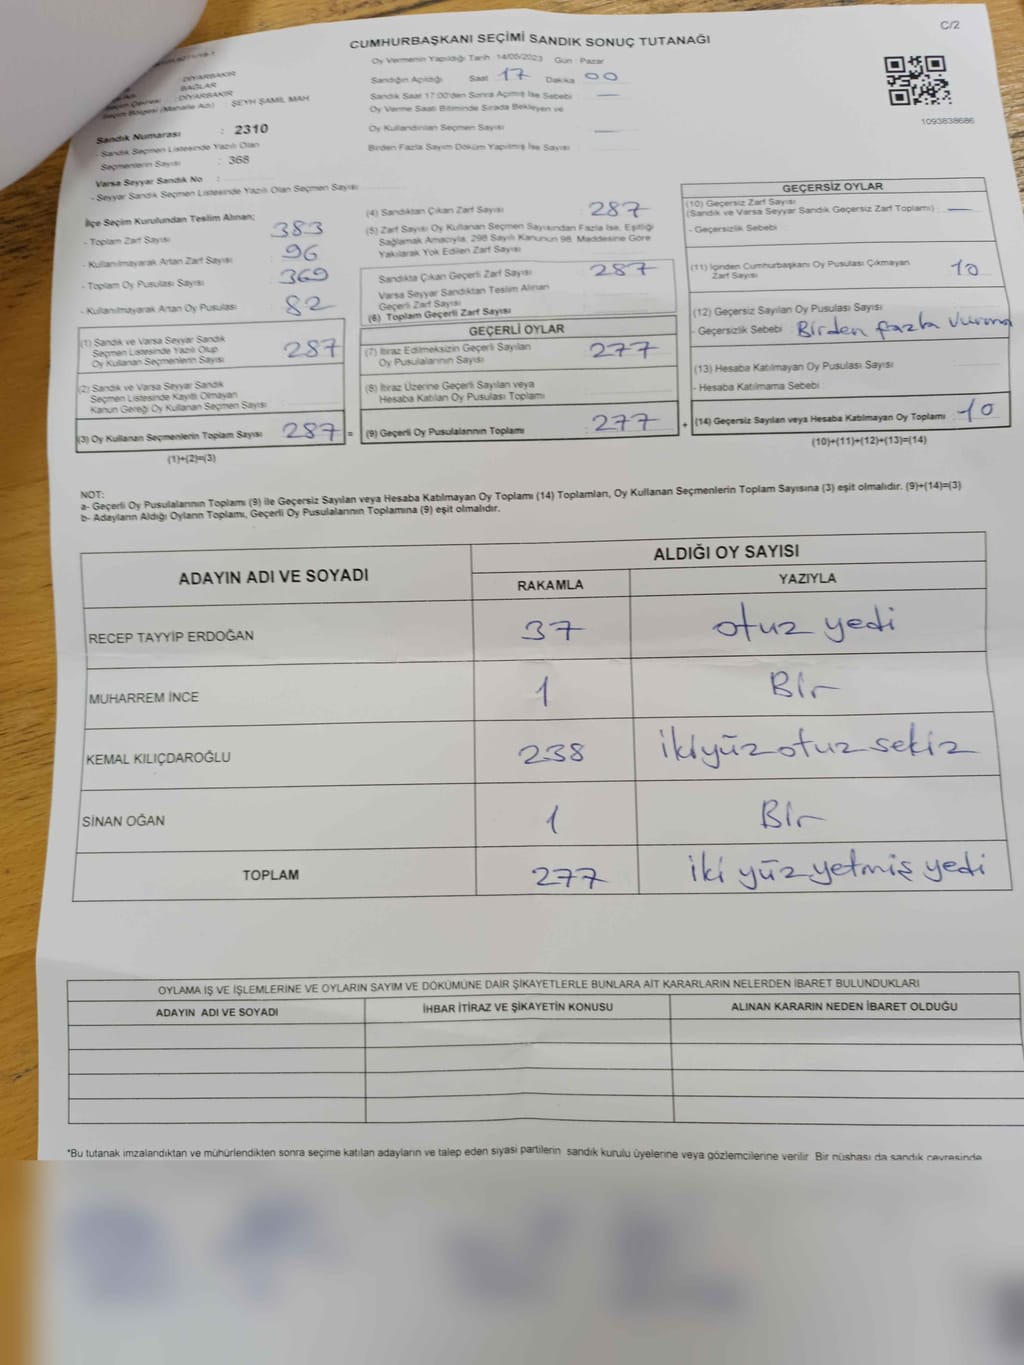 C/2
CUMHURBAŞKANI SEÇİMİ SANDIK SONUÇ TUTANAĞI
Oy Vermenin Yapıldığı Tarih : 14/05/2023 Gün : Pazar
Sandığın Açıldığı Saat 17 Dakika 00
Sandık Saat 17:00'den Sonra Açılmış İse Sebebi —
Oy Verme Saati Bitiminde Sırada Bekleyen ve
Oy Kullandırılan Seçmen Sayısı —
Birden Fazla Sayım Döküm Yapılmış İse Sayısı
DİYARBAKIR
BAĞLAR
Seçim Çevresi : DİYARBAKIR
Seçim Bölgesi (Mahalle Adı) : ŞEYH ŞAMİL MAH
Sandık Numarası : 2310
- Sandık Seçmen Listesinde Yazılı Olan
Seçmenlerin Sayısı : 368
Varsa Seyyar Sandık No :
- Seyyar Sandık Seçmen Listesinde Yazılı Olan Seçmen Sayısı
1093838686
İlçe Seçim Kurulundan Teslim Alınan;
- Toplam Zarf Sayısı : 383
- Kullanılmayarak Artan Zarf Sayısı : 96
- Toplam Oy Pusulası Sayısı : 369
- Kullanılmayarak Artan Oy Pusulası : 82
(1) Sandık ve Varsa Seyyar Sandık
Seçmen Listesinde Yazılı Olup
Oy Kullanan Seçmenlerin Sayısı 287
(2) Sandık ve Varsa Seyyar Sandık
Seçmen Listesinde Kayıtlı Olmayan
Kanun Gereği Oy Kullanan Seçmen Sayısı
(3) Oy Kullanan Seçmenlerin Toplam Sayısı 287 =
(1)+(2)=(3)
(4) Sandıktan Çıkan Zarf Sayısı : 287
(5) Zarf Sayısı Oy Kullanan Seçmen Sayısından Fazla İse, Eşitliği
Sağlamak Amacıyla, 298 Sayılı Kanunun 98. Maddesine Göre
Yakılarak Yok Edilen Zarf Sayısı
Sandıkta Çıkan Geçerli Zarf Sayısı : 287
Varsa Seyyar Sandıktan Teslim Alınan
Geçerli Zarf Sayısı
(6) Toplam Geçerli Zarf Sayısı
GEÇERLİ OYLAR
(7) İtiraz Edilmeksizin Geçerli Sayılan
Oy Pusulalarının Sayısı : 277
(8) İtiraz Üzerine Geçerli Sayılan veya
Hesaba Katılan Oy Pusulası Toplamı
(9) Geçerli Oy Pusulalarının Toplamı : 277 +
GEÇERSİZ OYLAR
(10) Geçersiz Zarf Sayısı
(Sandık ve Varsa Seyyar Sandık Geçersiz Zarf Toplamı) : —
- Geçersizlik Sebebi :
(11) İçinden Cumhurbaşkanı Oy Pusulası Çıkmayan
Zarf Sayısı 10
(12) Geçersiz Sayılan Oy Pusulası Sayısı
- Geçersizlik Sebebi : Birden fazla vurma
(13) Hesaba Katılmayan Oy Pusulası Sayısı
- Hesaba Katılmama Sebebi
(14) Geçersiz Sayılan veya Hesaba Katılmayan Oy Toplamı 10
(10)+(11)+(12)+(13)=(14)
NOT:
a- Geçerli Oy Pusulalarının Toplamı (9) ile Geçersiz Sayılan veya Hesaba Katılmayan Oy Toplamı (14) Toplamları, Oy Kullanan Seçmenlerin Toplam Sayısına (3) eşit olmalıdır. (9)+(14)=(3)
b- Adayların Aldığı Oyların Toplamı, Geçerli Oy Pusulalarının Toplamına (9) eşit olmalıdır.
ADAYIN ADI VE SOYADI ALDIĞI OY SAYISI
RAKAMLA YAZIYLA
RECEP TAYYİP ERDOĞAN 37 otuz yedi
MUHARREM İNCE 1 Bir
KEMAL KILIÇDAROĞLU 238 iki yüz otuz sekiz
SİNAN OĞAN 1 Bir
TOPLAM 277 iki yüz yetmiş yedi
OYLAMA İŞ VE İŞLEMLERİNE VE OYLARIN SAYIM VE DÖKÜMÜNE DAİR ŞİKAYETLERLE BUNLARA AİT KARARLARIN NELERDEN İBARET BULUNDUKLARI
ADAYIN ADI VE SOYADI İHBAR İTİRAZ VE ŞİKAYETİN KONUSU ALINAN KARARIN NEDEN İBARET OLDUĞU
*Bu tutanak imzalandıktan ve mühürlendikten sonra seçime katılan adayların ve talep eden siyasi partilerin sandık kurulu üyelerine veya gözlemcilerine verilir. Bir nüshası da sandık çevresinde